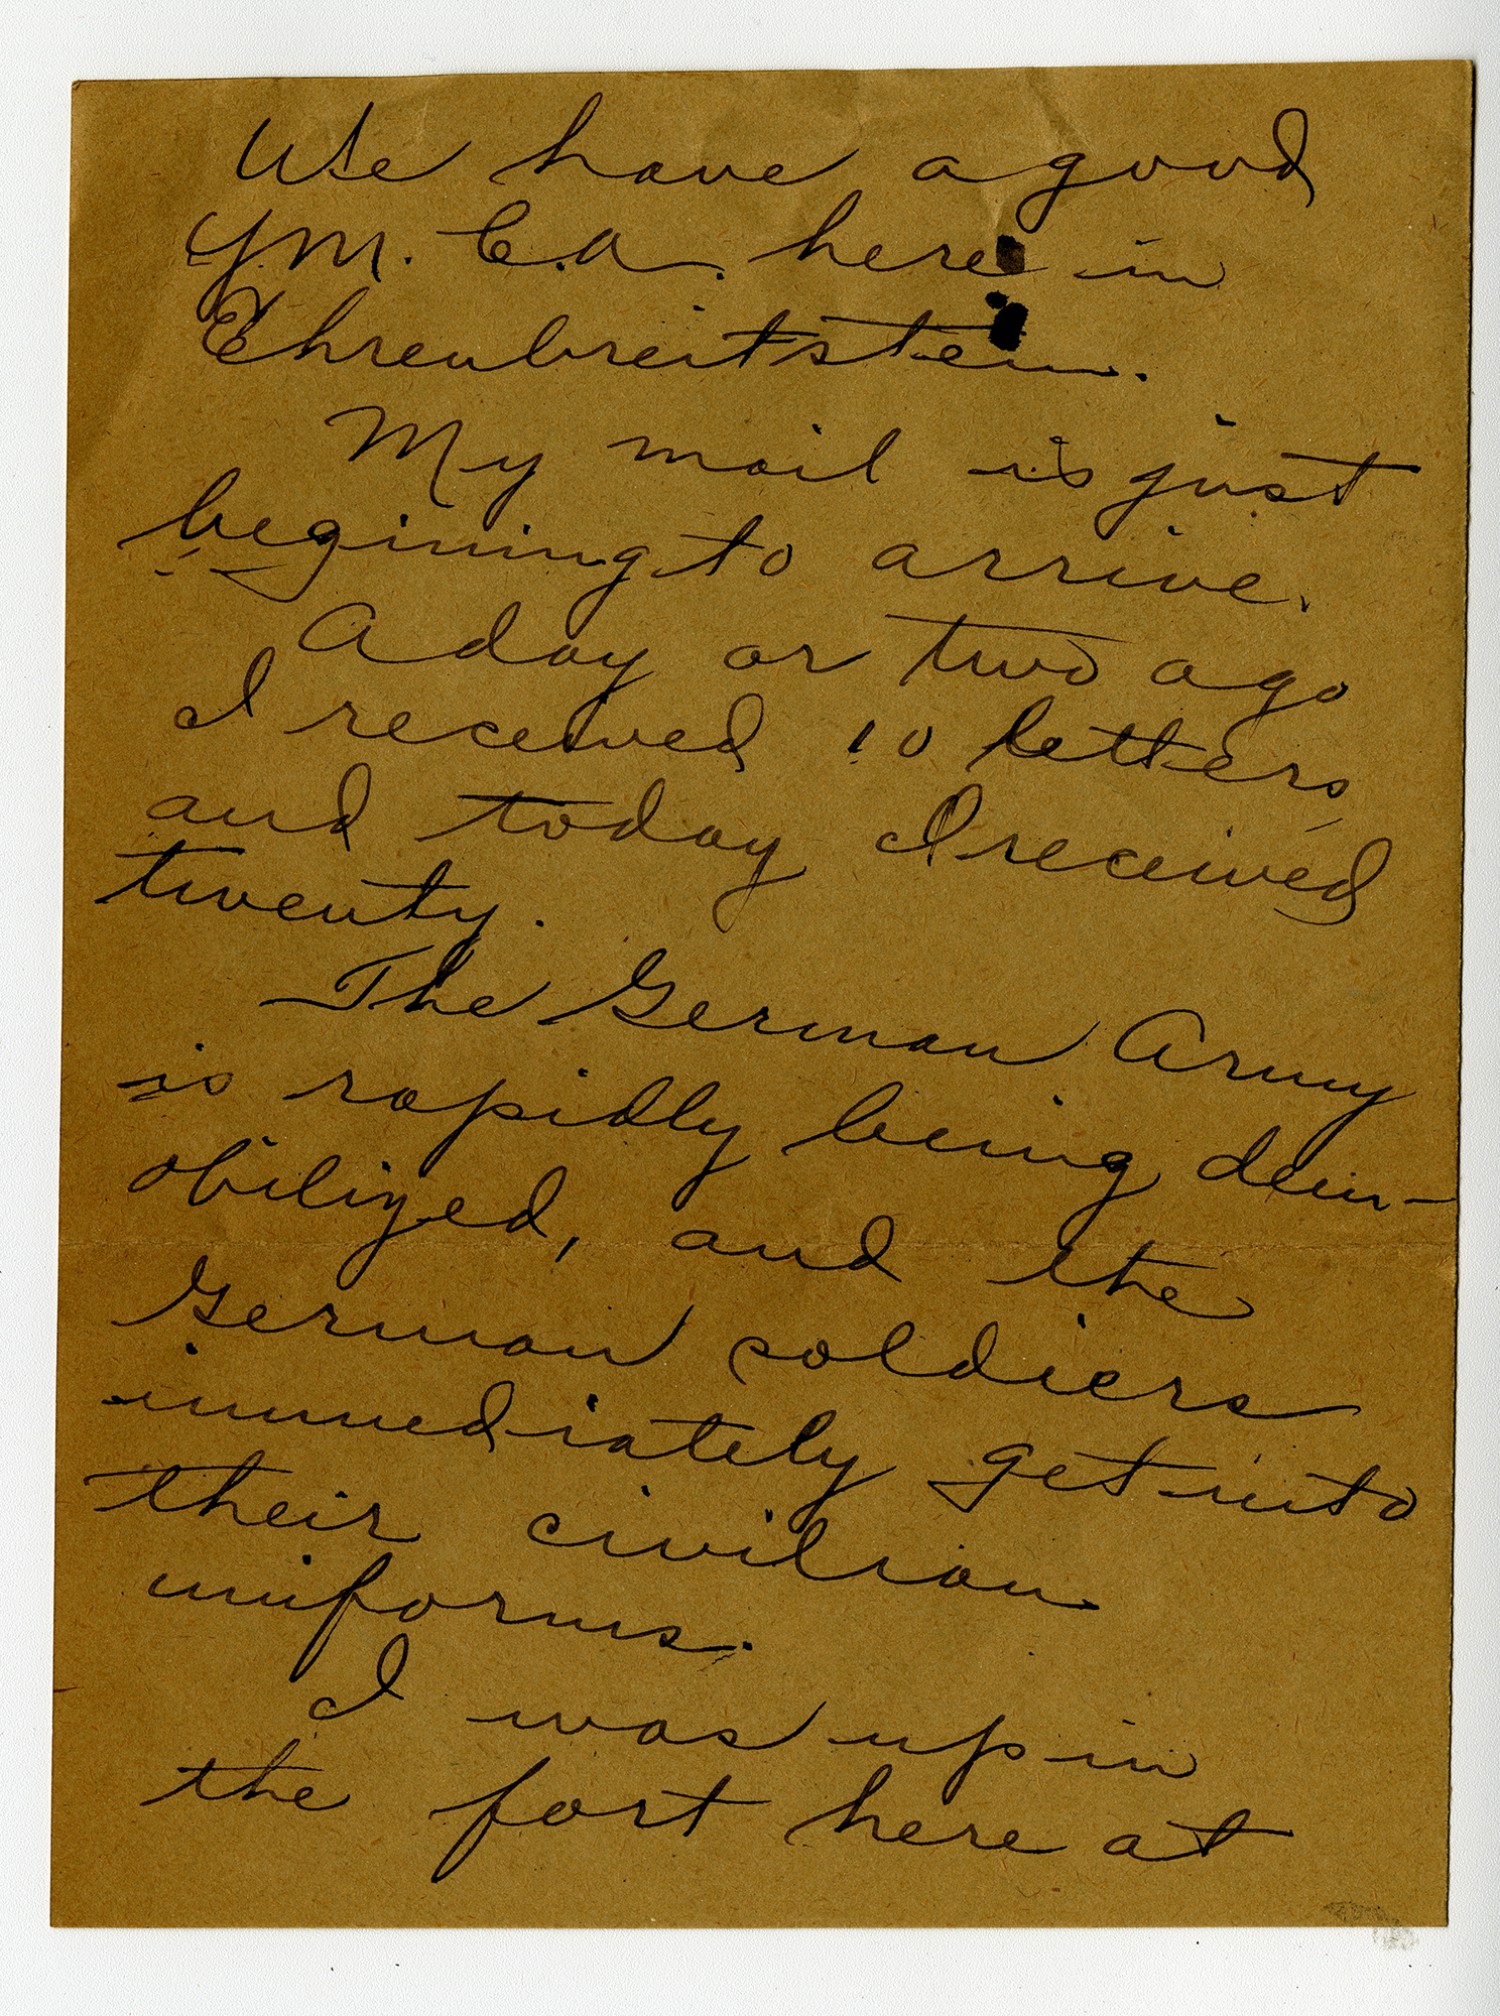 We have a good
Y.M.C.A. here in
Ehrenbreitstein.
My mail is just
begining to arrive.
A day or two ago
I received 10 letters
and today I received
twenty.
The German Army
is rapidly being dem-
obilized, and the
German soldiers
immediately get into
their civilian
uniforms.
I was up in
the fort here at